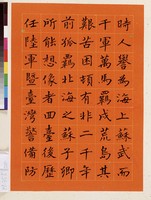 時人譽為海上蘇武而
千軍萬馬羈戍荒島其
艱苦困頓有非二千年
前孤羈北海之蘇子卿
所能想像者四復歷
任陸軍暨臺灣警備防